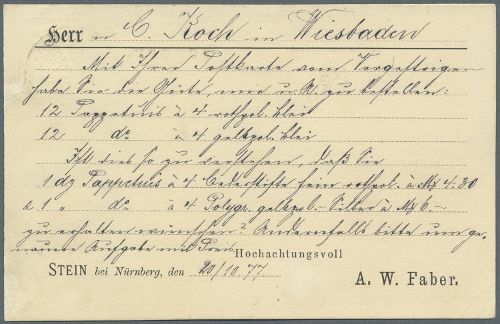 Herrn C. Koch in Wiesbaden
Mit Ihrer Postkarte vom Vorgestrigen
habe Sie die Güte, mir zu bestellen:
12 Pappetuis à 4 rothpol. klei
12 do à 4 gelbpol. klei
Ist dies so zu verstehen, daß Sie
1 dz Pappetuis à 4 Cederstifte fein rothpol. à M 4.30
& 1 " do à 4 Polygr. gelbpol. Silber à M 6.–
zu erhalten wünschen? Andernfalls bitte um ge-
nauere Aufgabe mit Preis.
Hochachtungsvoll
STEIN bei Nürnberg, den 20/10.77
A. W. Faber.